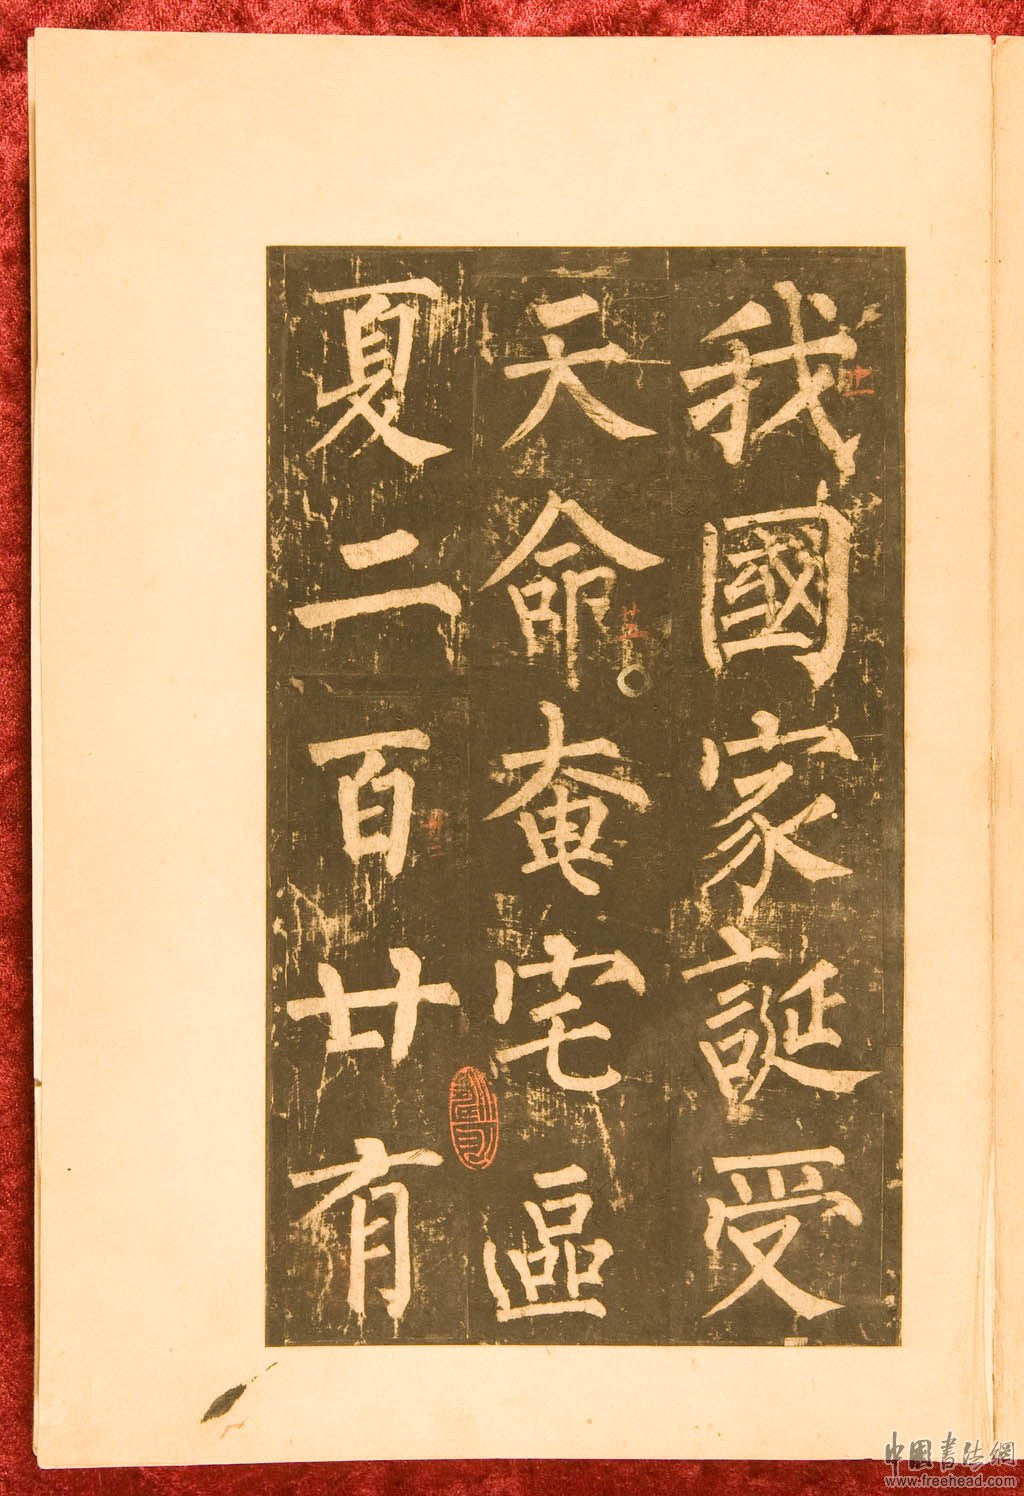 我國家誕受
天命奄宅區
夏二百廿有
中國書法網
www.freehead.com